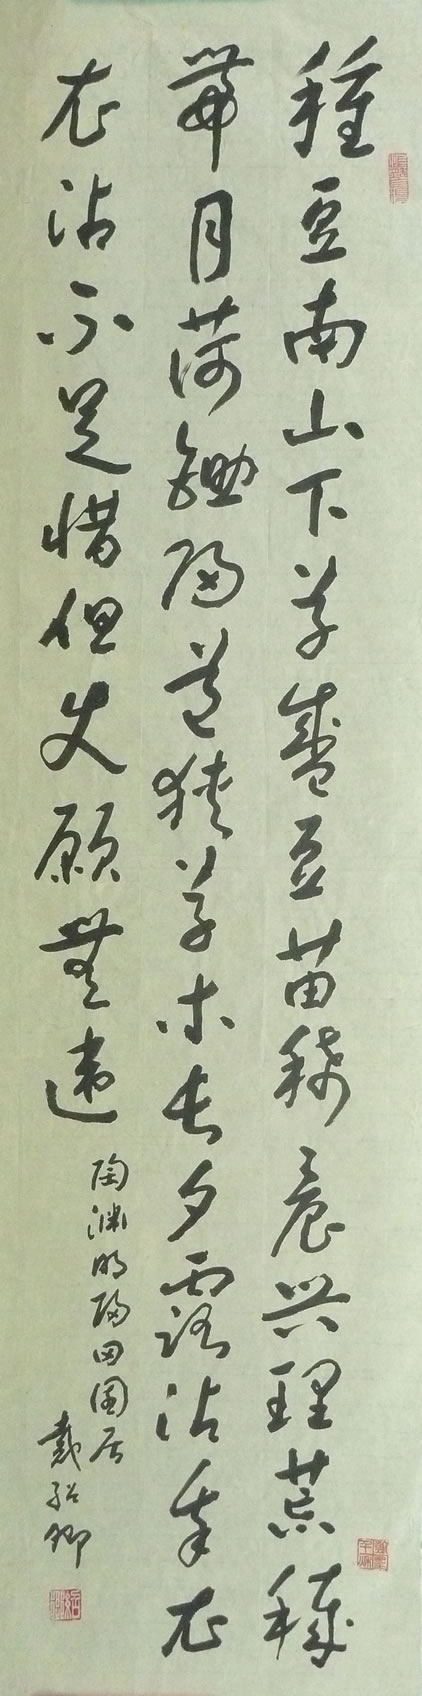 種豆南山下草盛豆苗稀晨兴理荒穢
帶月荷鋤歸道狭草木长夕露沾我衣
衣沾不足惜但使願無違
陶渊明歸田園居
戴